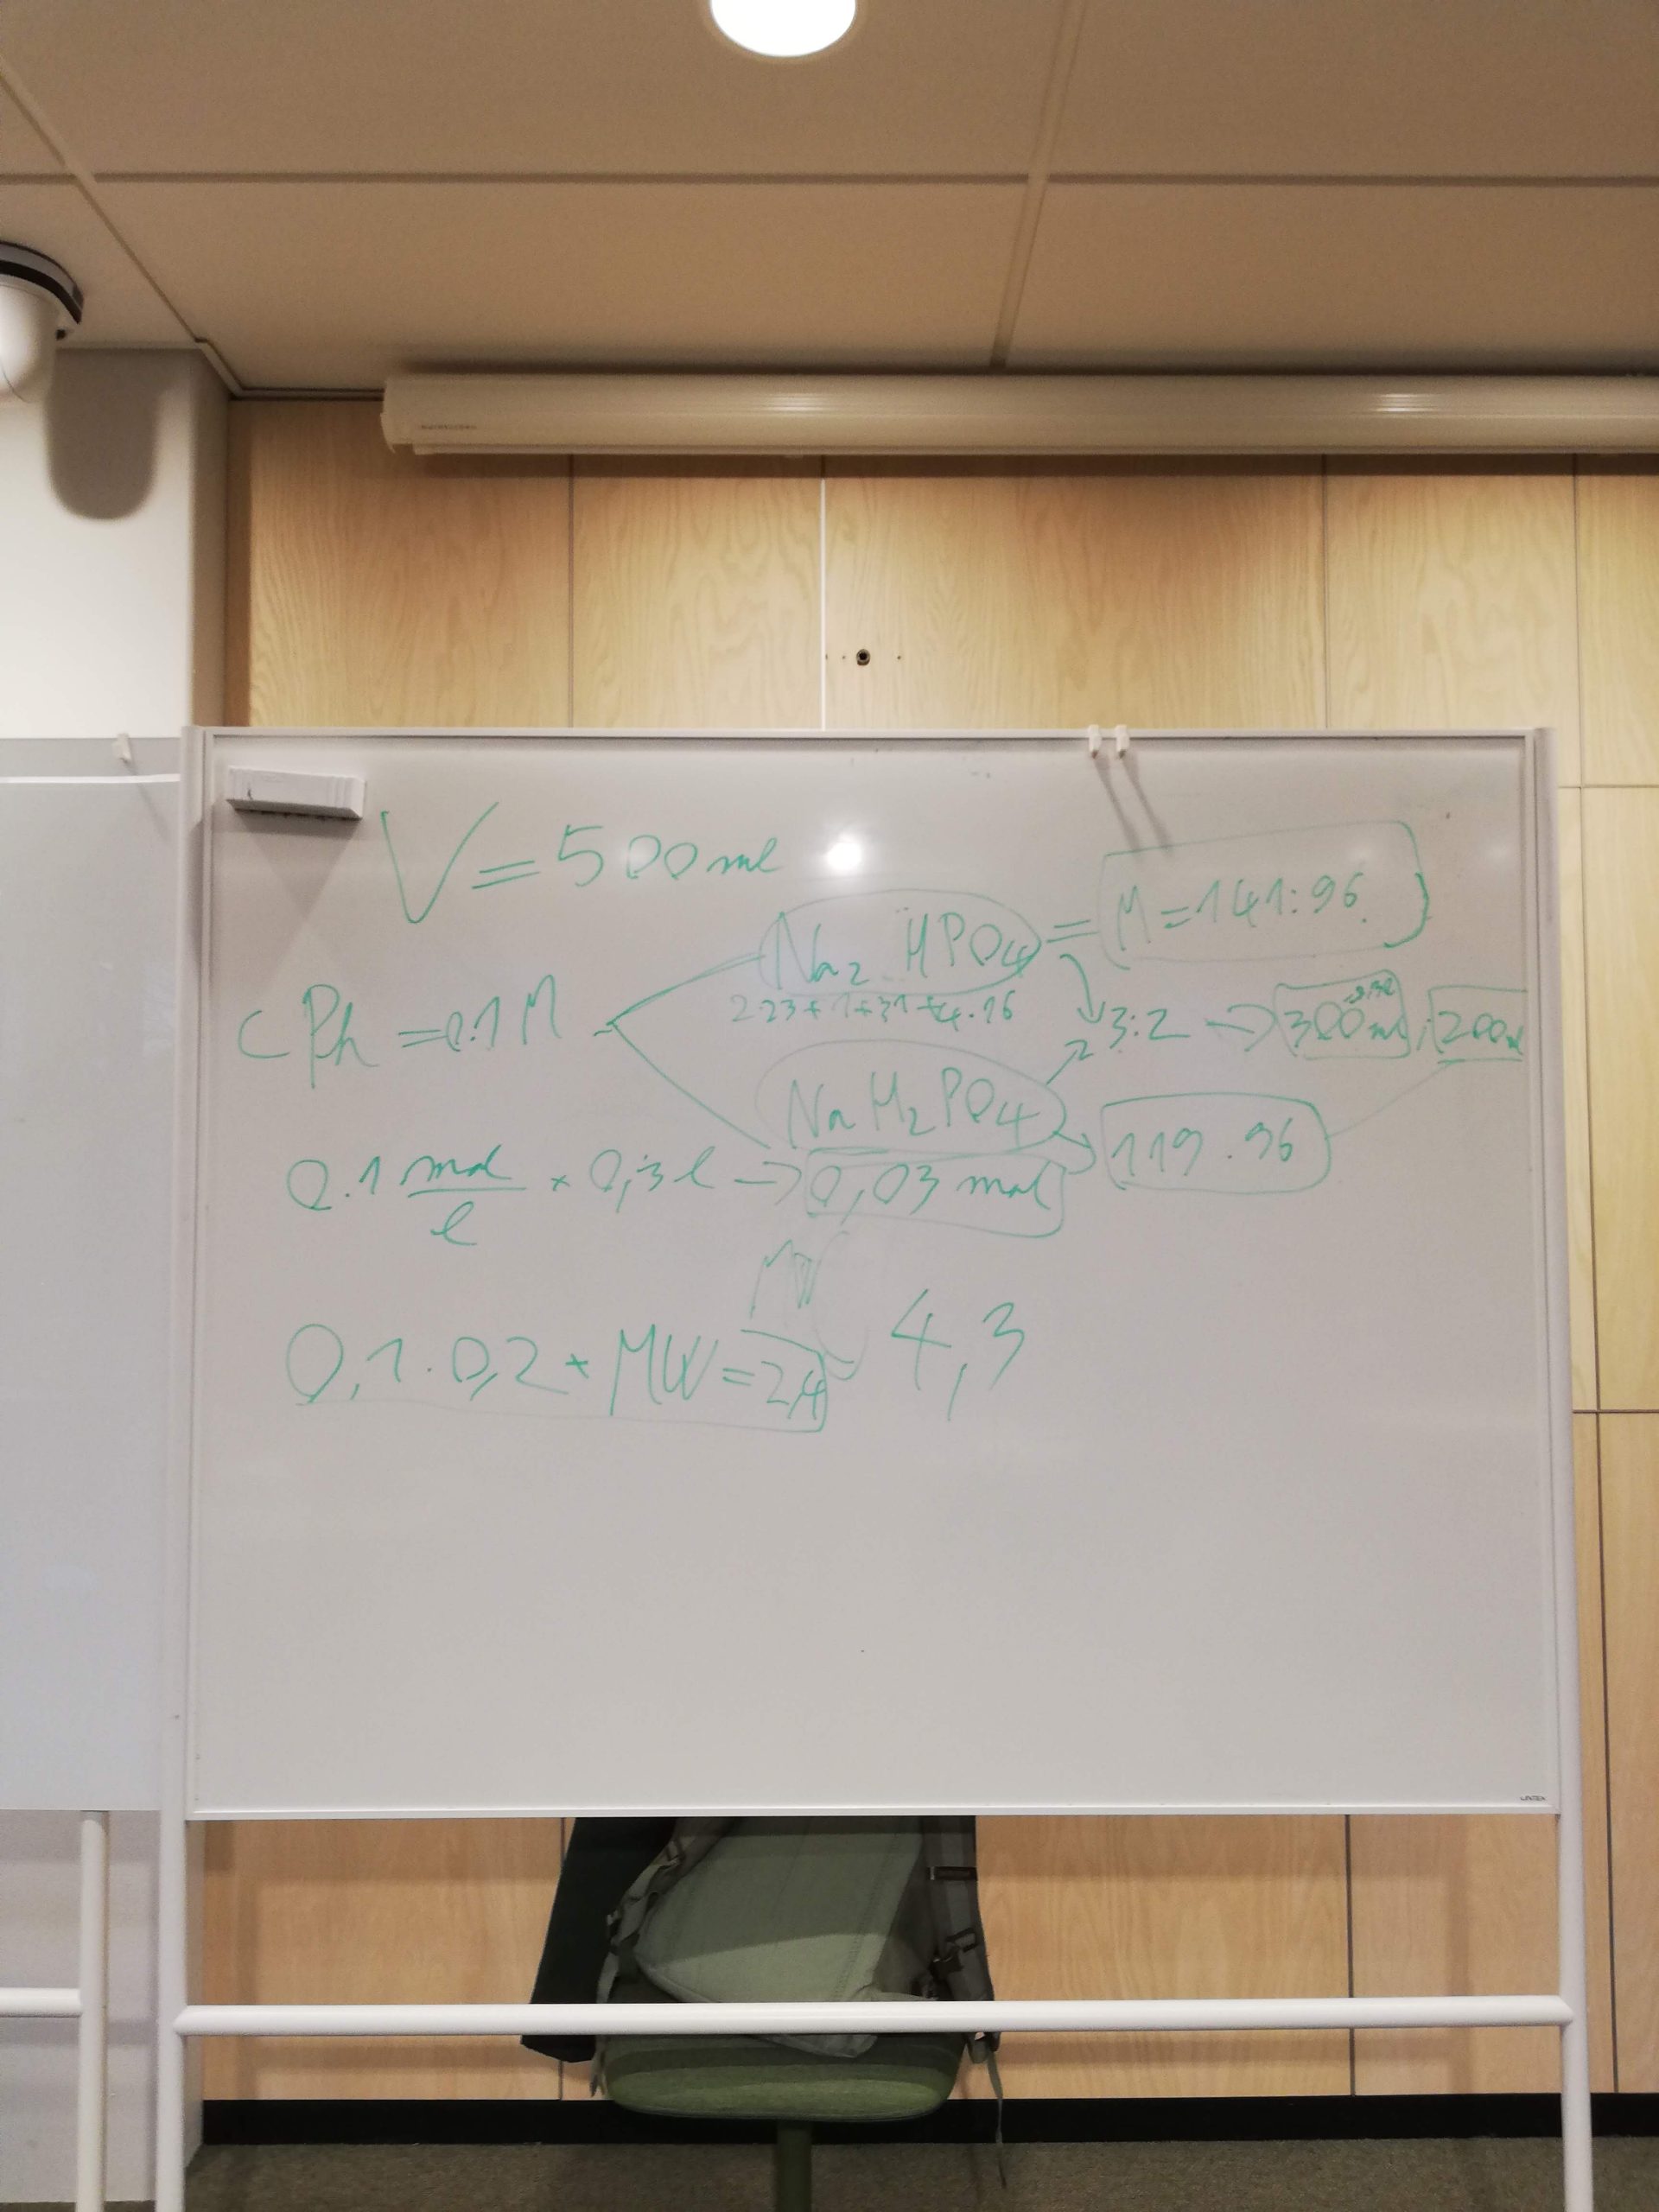 V = 500 ml
Na₂ HPO₄ = M = 141.96
2·23 + 1 + 31 + 4·16
c Ph = 0.1 M
3:2 → 300 ml, 200 ml
Na H₂PO₄
119.96
0.1 mol/l × 0,3 l → 0,03 mol
MW
0,1 · 0,2 * MW = 2,4
4,3